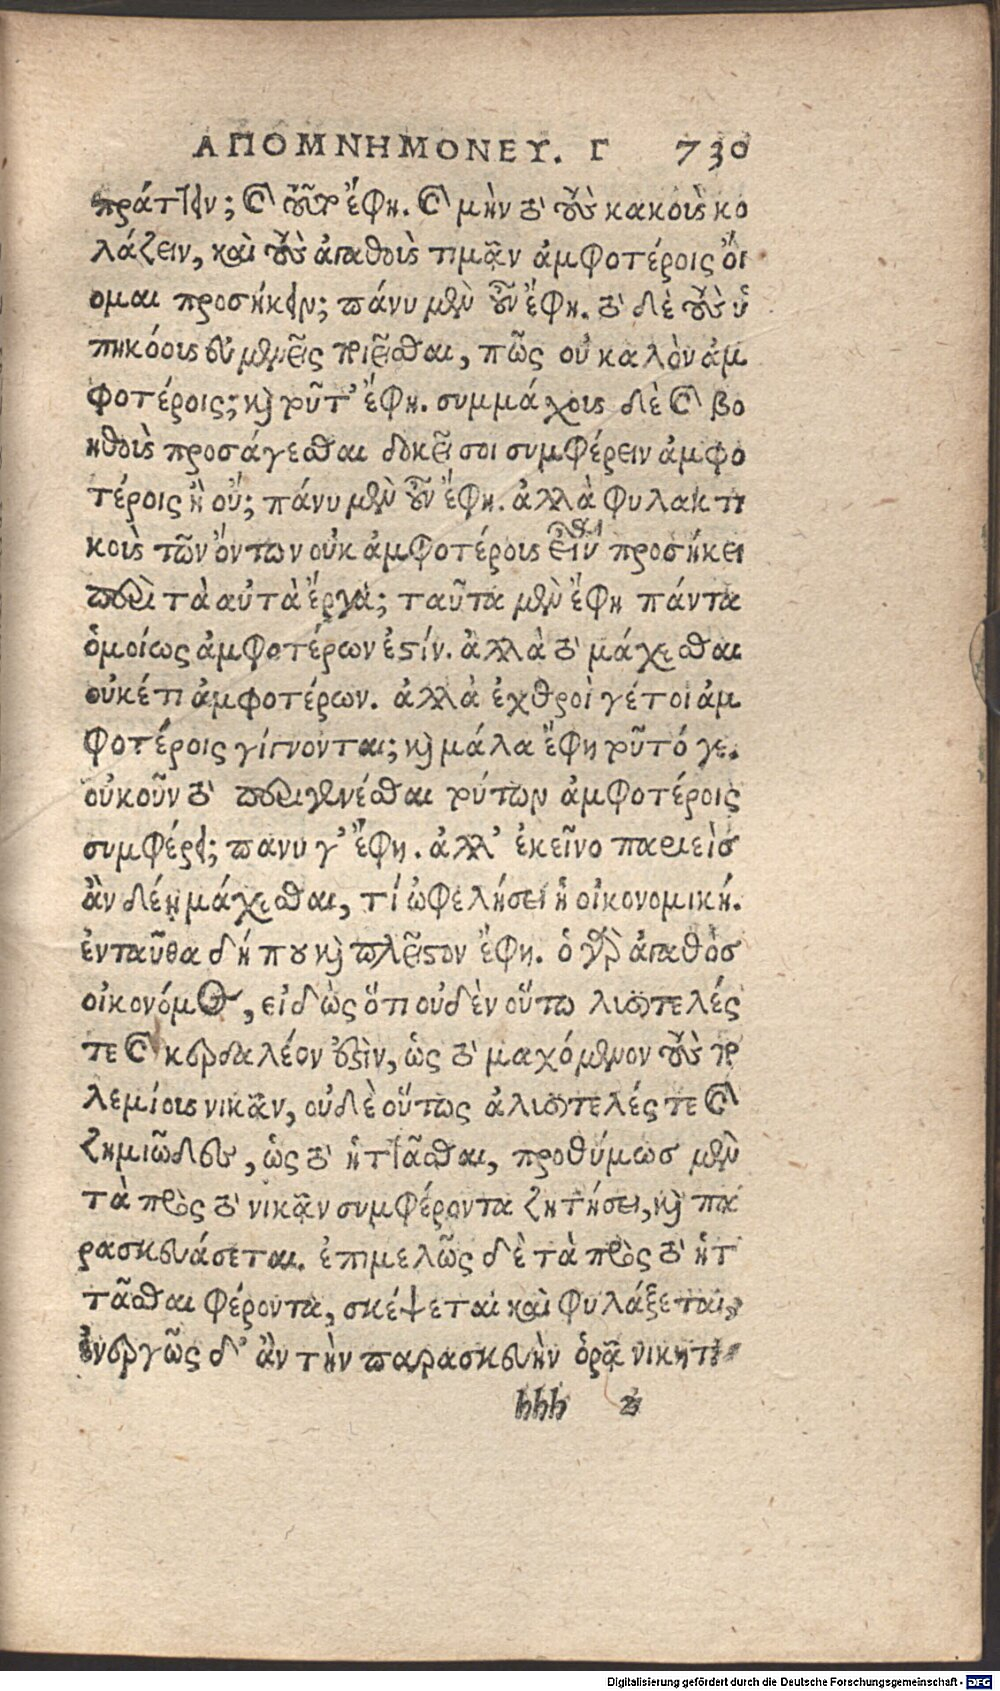 ΑΠΟΜΝΗΜΟΝΕΥ. Γ 730
πράττειν; καὶ τοῦτ' ἔφη. καὶ μὴν τὸ τοὺς κακοὺς κο
λάζειν, καὶ τοὺς ἀγαθοὺς τιμᾶν ἀμφοτέροις οἴ
ομαι προσήκειν; πάνυ μὲν οὖν ἔφη. τὸ δὲ τοὺς ὑ
πηκόους εὐμενεῖς ποιεῖσθαι, πῶς οὐ καλὸν ἀμ
φοτέροις; καὶ τοῦτ' ἔφη. συμμάχους δὲ καὶ βο
ηθοὺς προσάγεσθαι δοκεῖ σοι συμφέρειν ἀμφο
τέροις ἢ οὔ; πάνυ μὲν οὖν ἔφη. ἀλλὰ φυλακτι
κοὺς τῶν ὄντων οὐκ ἀμφοτέρους εἶναι προσήκει
περὶ τὰ αὑτὰ ἔργα; ταῦτα μὲν ἔφη πάντα
ὁμοίως ἀμφοτέρων ἐστίν. ἀλλὰ τὸ μάχεσθαι
οὐκέτι ἀμφοτέρων. ἀλλὰ ἐχθροὶ γέ τοι ἀμ
φοτέροις γίγνονται; καὶ μάλα ἔφη τοῦτό γε.
οὐκοῦν τὸ περιγενέσθαι τούτων ἀμφοτέροις
συμφέρει; πανυ γ' ἔφη. ἀλλ' ἐκεῖνο παριεὶς
ἂν δέῃ μάχεσθαι, τί ὠφελήσει ἡ οἰκονομική.
ἐνταῦθα δή που καὶ πλεῖστον ἔφη. ὁ γὰρ ἀγαθὸς
οἰκονόμος, εἰδὼς ὅτι οὐδὲν οὕτω λυσιτελές
τε καὶ κερδαλέον ἐστὶν, ὡς τὸ μαχόμενον τοὺς πο
λεμίους νικᾶν, οὐδὲ οὕτως ἀλυσιτελές τε καὶ
ζημιῶδες, ὡς τὸ ἡττᾶσθαι, προθύμως μὲν
τὰ πρὸς τὸ νικᾶν συμφέροντα ζητήσει, καὶ πα
ρασκευάσεται. ἐπιμελῶς δὲ τὰ πρὸς τὸ ἡτ
τᾶσθαι φέροντα, σκέψεται καὶ φυλάξεται,
ἐνεργῶς δ' ἂν τὴν παρασκευὴν ὁρᾷ νικητι
hhh 2
Digitalisierung gefördert durch die Deutsche Forschungsgemeinschaft - DFG